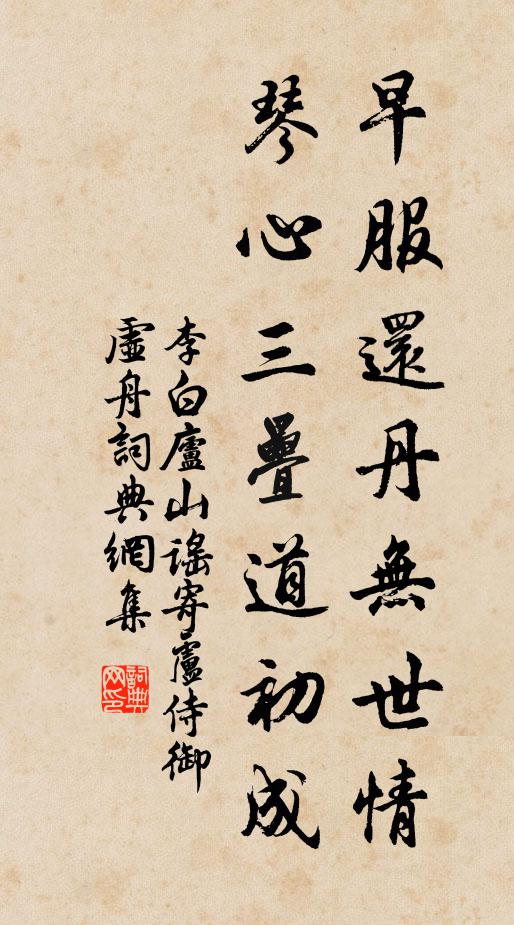 早服還丹無世情
琴心三疊道初成
李白廬山謠寄盧侍御
虛舟詞典網集
詞典網印